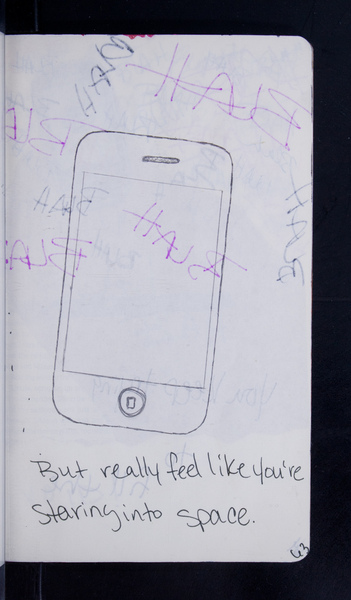 BLAH
BLAH
BLAH
BLAH
BLAH
BLAH
BLAH
BLAH
But really feel like you're
staring into space.
63